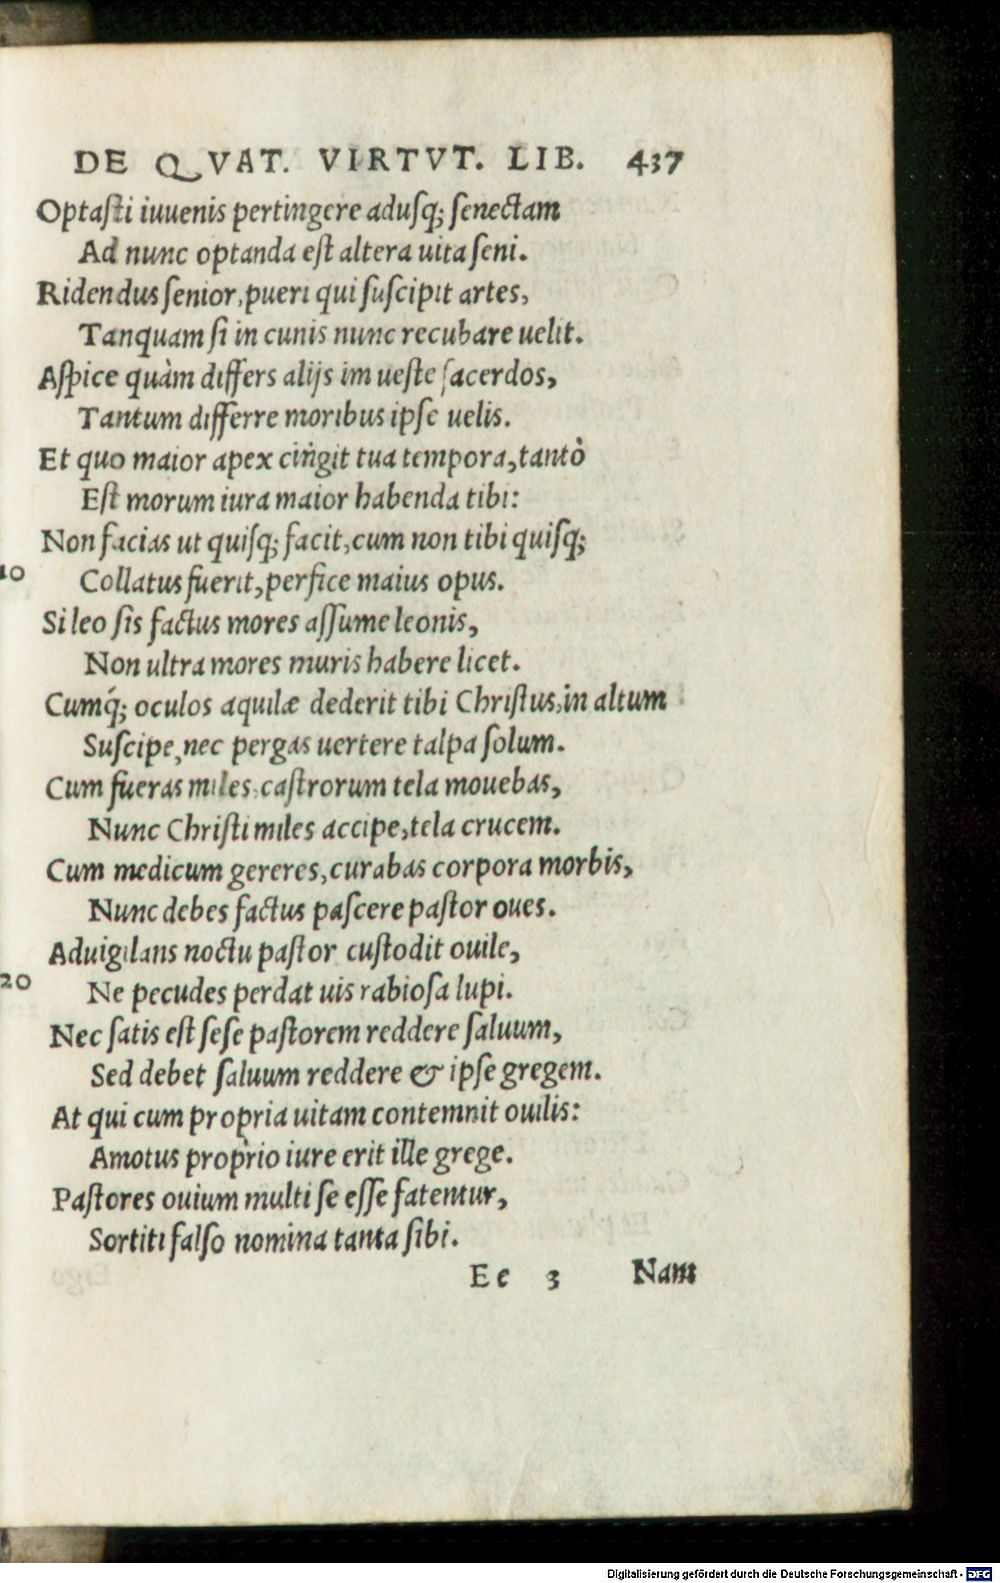 DE QVAT. VIRTVT. LIB. 437
Optaſti iuuenis pertingere aduſq; ſenectam
Ad nunc optanda eſt altera uita ſeni.
Ridendus ſenior, pueri qui ſuſcipit artes,
Tanquam ſi in cunis nunc recubare uelit.
Aſpice quàm differs alijs im ueſte ſacerdos,
Tantum differre moribus ipſe uelis.
Et quo maior apex cingit tua tempora, tantò
Eſt morum iura maior habenda tibi:
Non facias ut quiſq; facit, cum non tibi quiſq;
10 Collatus fuerit, perfice maius opus.
Si leo ſis factus mores aſſume leonis,
Non ultra mores muris habere licet.
Cumq́; oculos aquilæ dederit tibi Chriſtus, in altum
Suſcipe, nec pergas uertere talpa ſolum.
Cum fueras miles, caſtrorum tela mouebas,
Nunc Chriſti miles accipe, tela crucem.
Cum medicum gereres, curabas corpora morbis,
Nunc debes factus paſcere paſtor oues.
Aduigilans noctu paſtor cuſtodit ouile,
20 Ne pecudes perdat uis rabioſa lupi.
Nec ſatis eſt ſeſe paſtorem reddere ſaluum,
Sed debet ſaluum reddere & ipſe gregem.
At qui cum propria uitam contemnit ouilis:
Amotus proprio iure erit ille grege.
Paſtores ouium multi ſe eſſe fatentur,
Sortiti falſo nomina tanta ſibi.
Ee 3 Nam
Digitalisierung gefördert durch die Deutsche Forschungsgemeinschaft - DFG